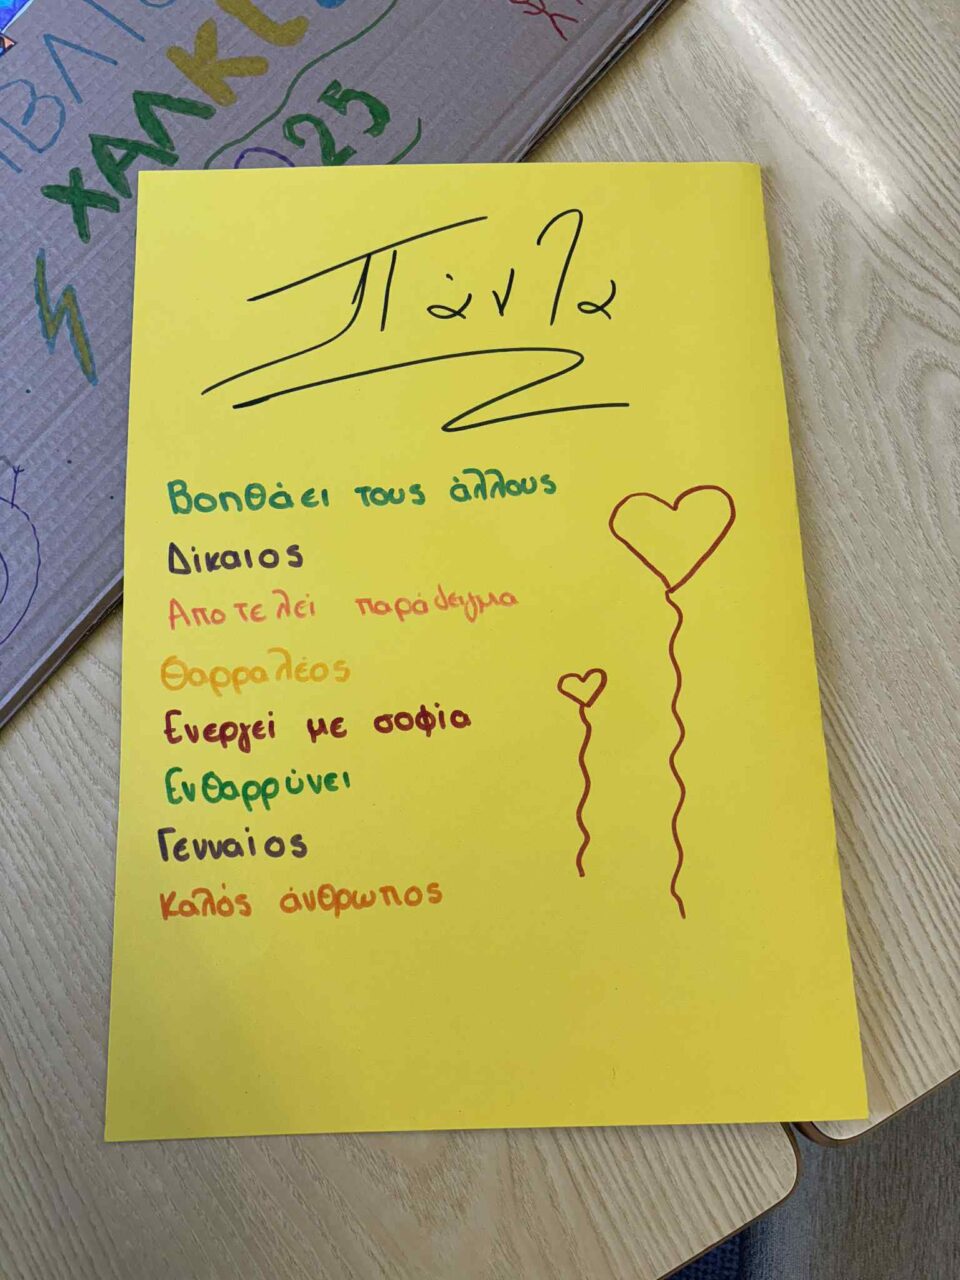 ΧΑΛΚΙ
2025
Πάντα
Βοηθάει τους άλλους
Δίκαιος
Αποτελεί παράδειγμα
Θαρραλέος
Ενεργεί με σοφία
Ενθαρρύνει
Γενναίος
Καλός άνθρωπος